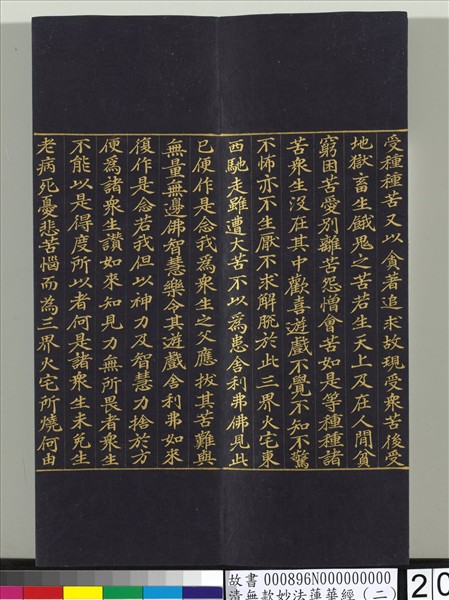 受種種苦又以貪著追求故現受衆苦後受
地獄畜生餓鬼之苦若生天上及在人間貧
窮困苦愛別離苦怨憎會苦如是等種種諸
苦衆生没在其中歡喜遊戲不覺不知不驚
不怖亦不生厭不求解脫於此三界火宅東
西馳走雖遭大苦不以爲患舍利弗佛見此
已便作是念我爲衆生之父應拔其苦難與
無量無邊佛智慧樂令其遊戲舍利弗如來
復作是念若我但以神力及智慧力捨於方
便爲諸衆生讃如來知見力無所畏者衆生
不能以是得度所以者何是諸衆生未免生
老病死憂悲苦惱而為三界火宅所燒何由
故書 000896N000000000
清無款妙法蓮華經(二)
20